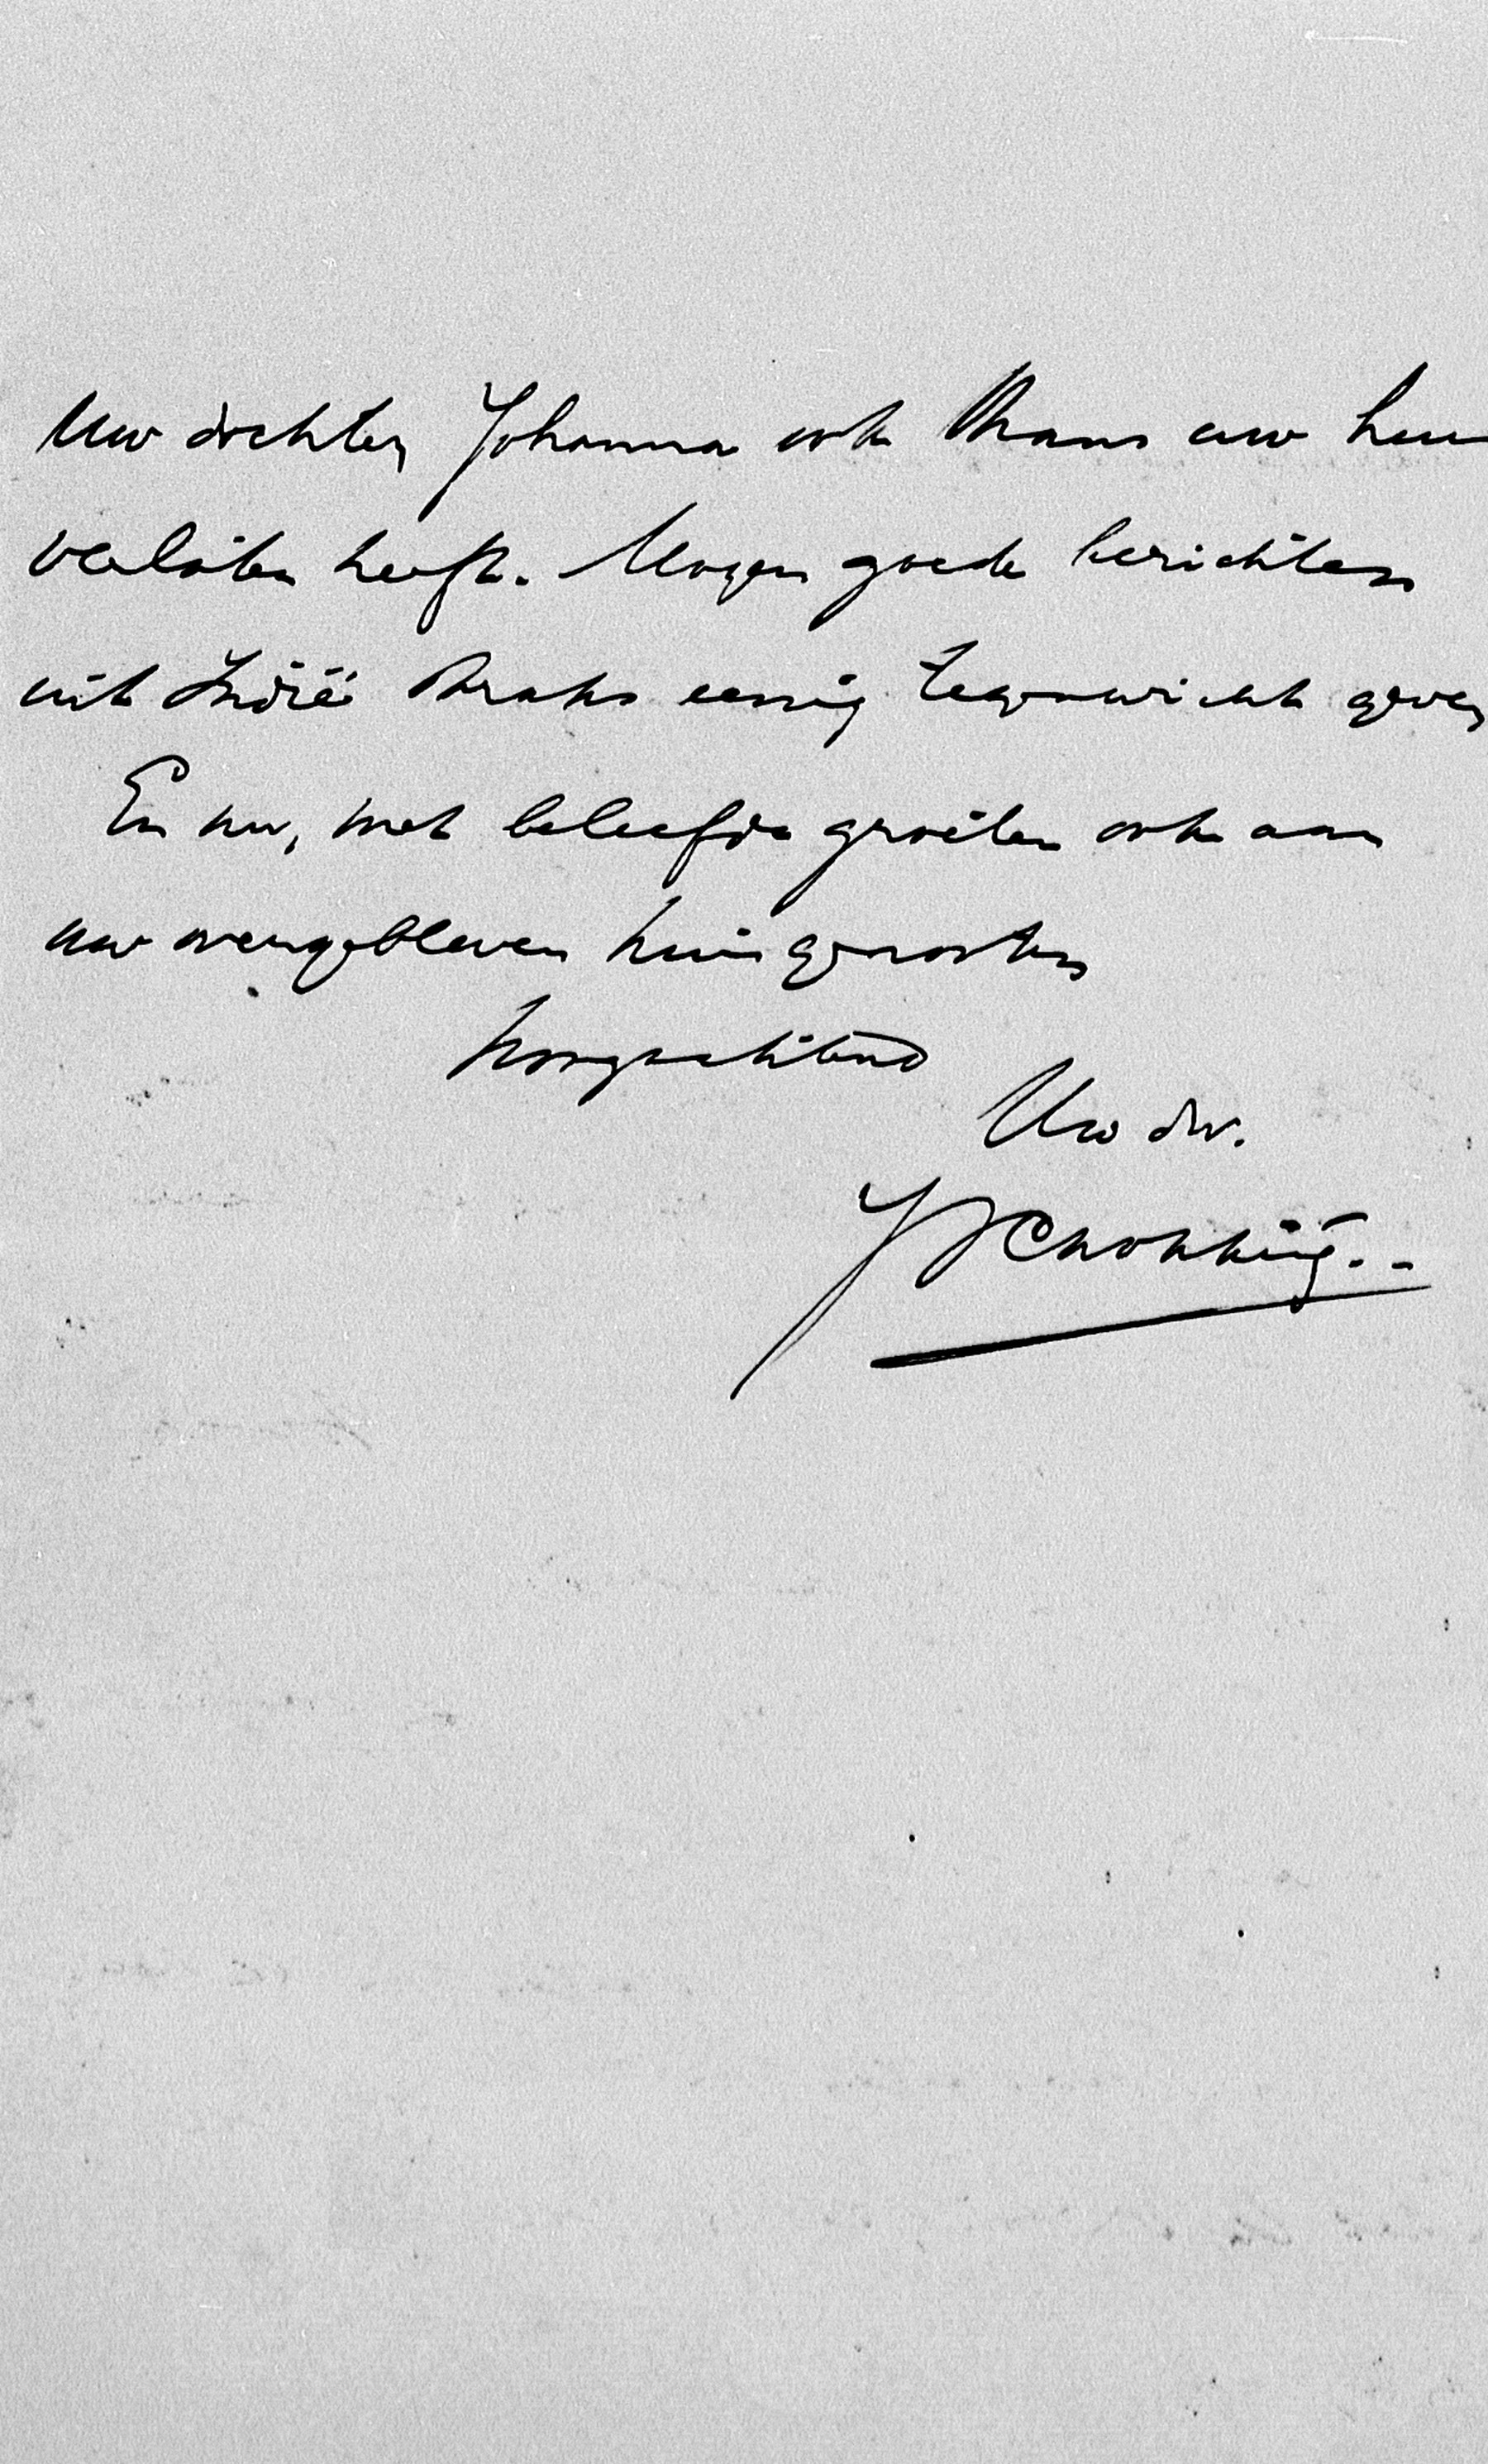 Uw dochter Johanna ook thans uw huis
verlaten heeft. Mogen goede berichten
uit Indië straks eenig tegenwicht geven
En nu, met beleefde groeten ook aan
uw overgebleven huisgenooten
hoogachtend
Uw dw.
J Schokking.